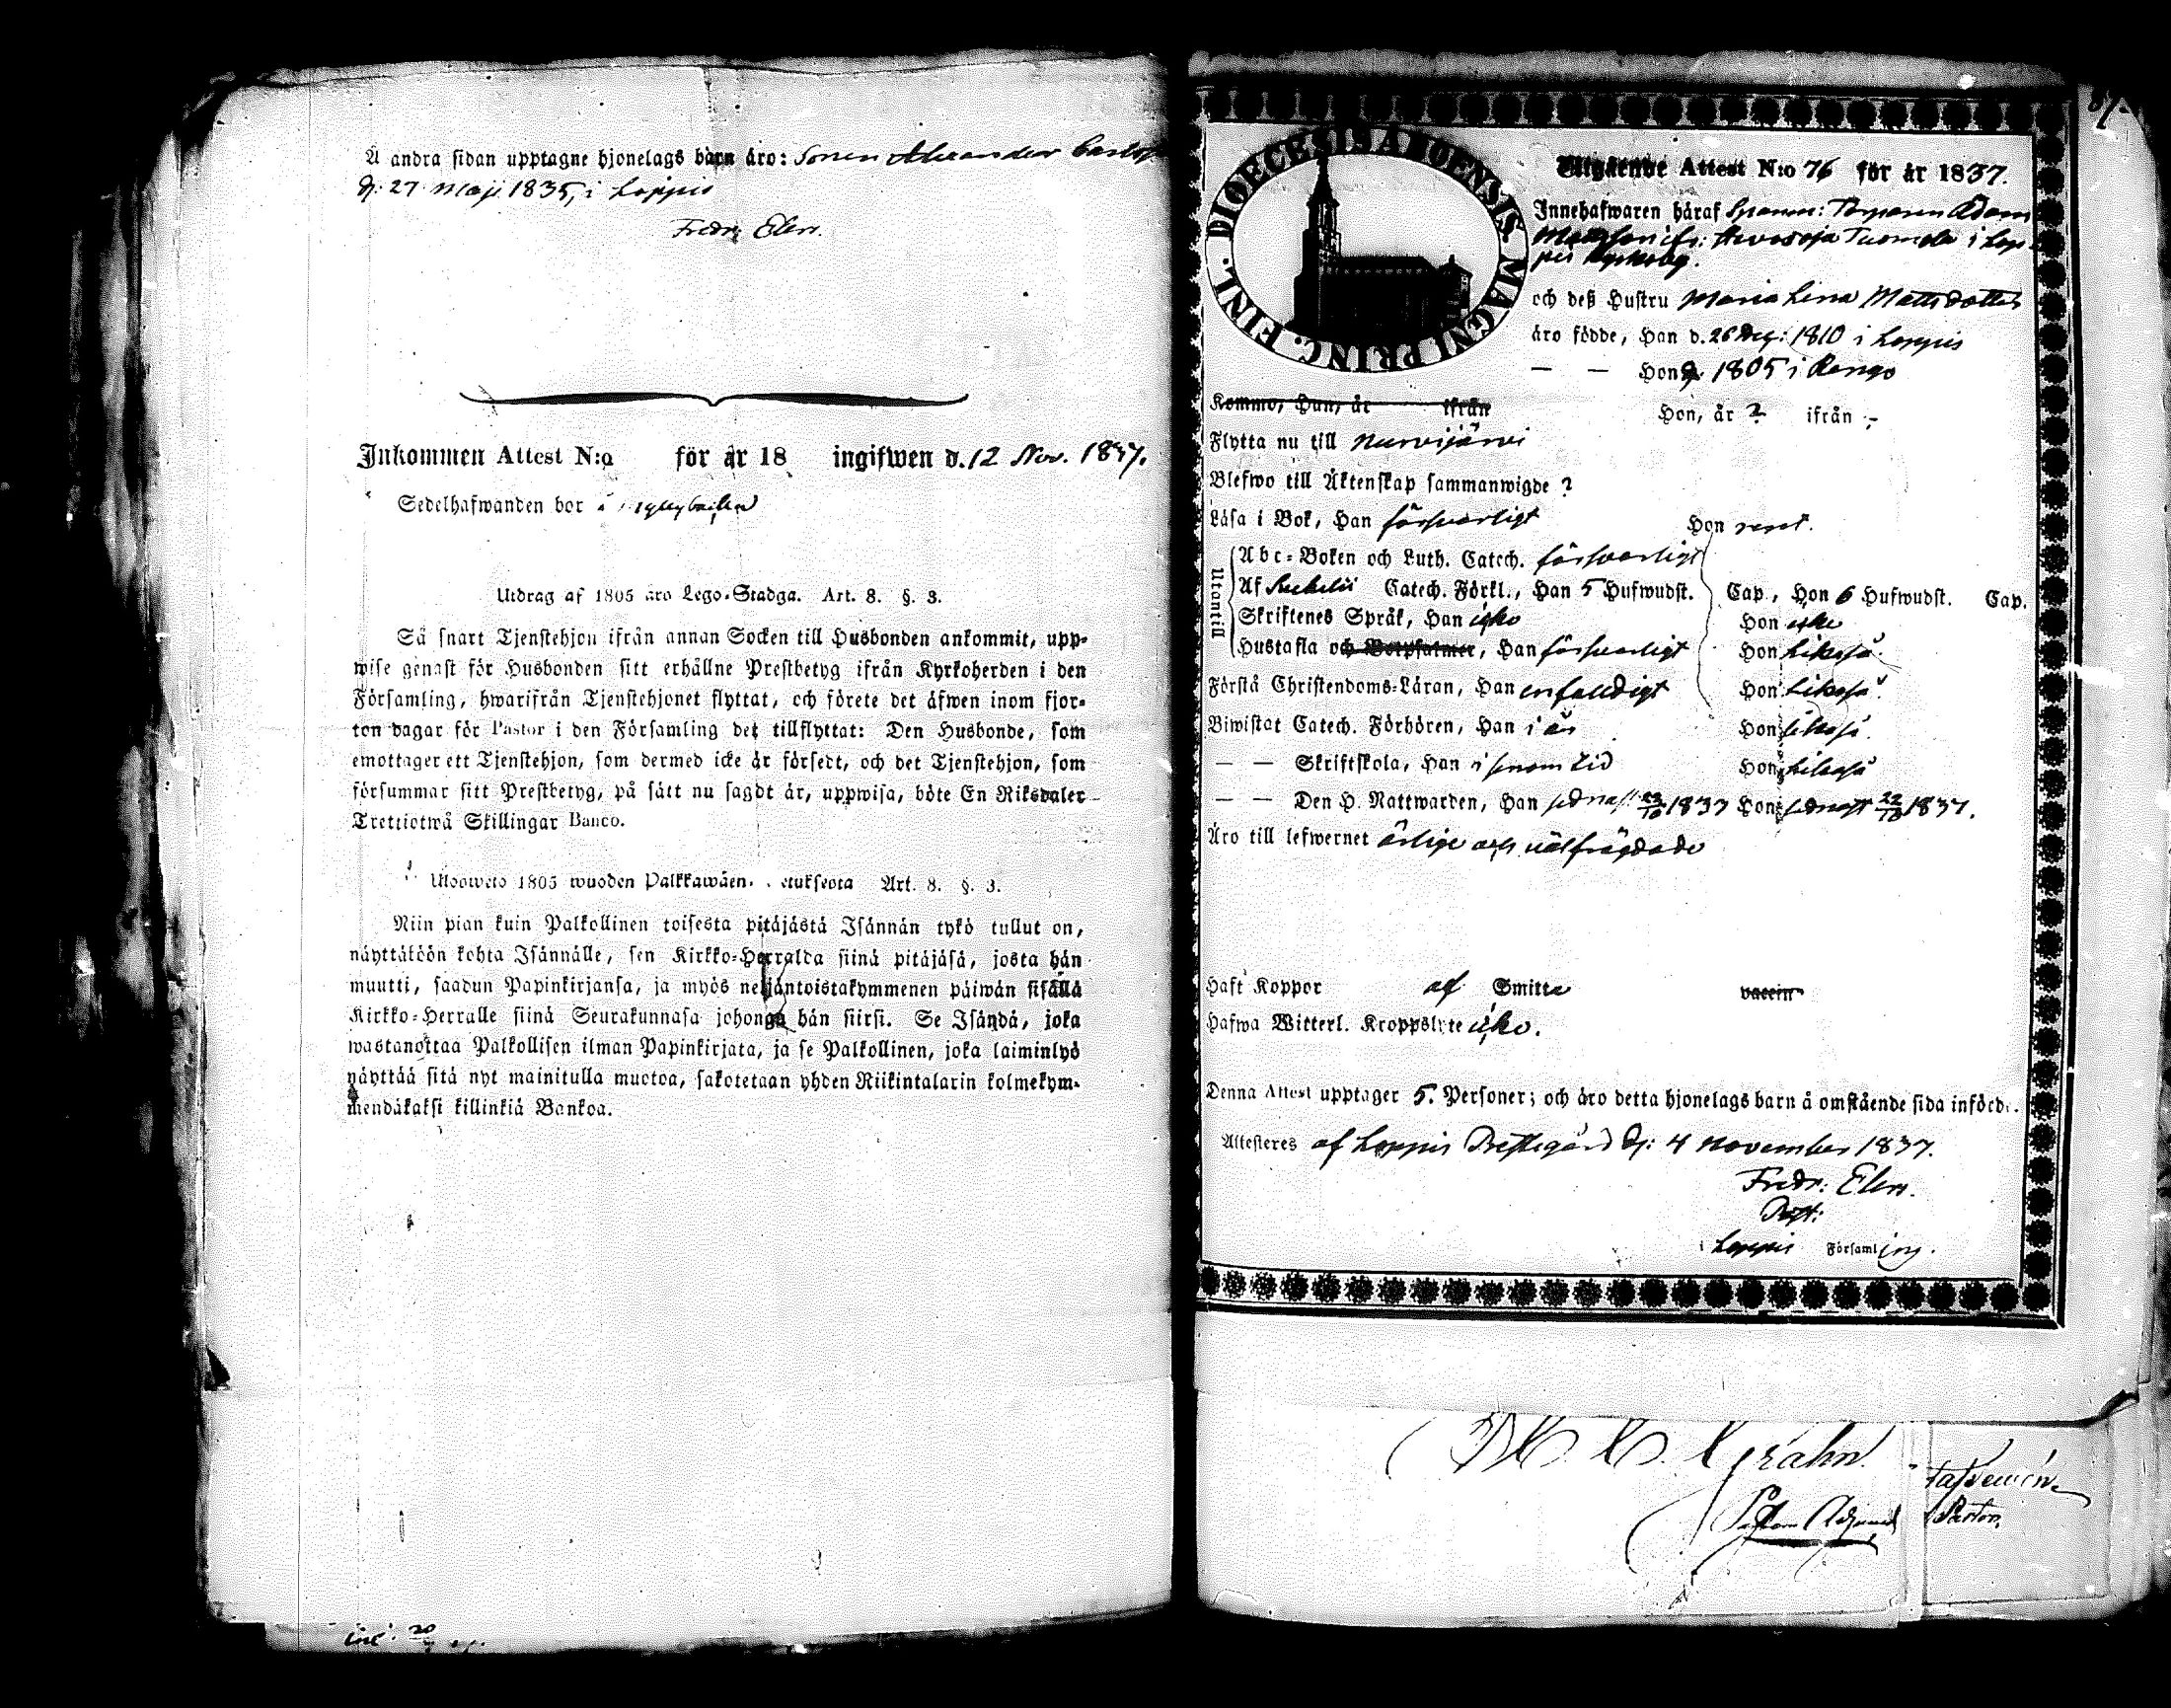 Å andra sidan upptagne hjonelags barn äro: Sonen Alexander
d. 27 Maji 1835, i Loppis
Fredr. Elers.
Inkommen Attest N:o för år 18 ingifwen d. 12 Nov. 1837.
Sedelhafwanden bor
Utdrag af 1805 års Lego-Stadga. Art. 8. §. 3.
Så snart Tjenstehjon ifrån annan Socken till Husbonden ankommit, upp-
wise genast för Husbonden sitt erhållne Prestbetyg ifrån Kyrkoherden i den
Församling, hwarifrån Tjenstehjonet flyttat, och förete det äfwen inom fjor-
ton dagar för Pastor i den Församling det tillflyttat: Den Husbonde, som
emottager ett Tjenstehjon, som dermed icke är försedt, och det Tjenstehjon, som
försummar sitt Prestbetyg, på sätt nu sagdt är, uppwisa, böte En Riksdaler
Trettiotwå Skillingar Banco.
1805 wuoden Art. 8. §. 3.
Niin pian kuin Palkollinen toisesta pitäjästä Isännän tykö tullut on,
näyttäköön kohta Isännälle, sen Kirkko-Herralda siinä pitäjäsä, josta hän
muutti, saadun Papinkirjansa, ja myös neljäntoistakymmenen päiwän sisällä
Kirkko-Herralle siinä Seurakunnasa johonga hän siirsi. Se Isändä, joka
wastanottaa Palkollisen ilman Papinkirjata, ja se Palkollinen, joka laiminlyö
näyttää sitä nyt mainitulla muotoa, sakotetaan yhden Riikintalarin kolmekym-
mendäkaksi killinkiä Bankoa.
DIOECESIS ABOENSIS MAGNI PRINC. FINL.
Utgående Attest N:o 76 för år 1837.
Innehafwaren häraf Torparen Adam
Tuomola i Lop-
pis
och deß Hustru Maria Lena Mattsdotter
äro födde, Han d. 26 1810 i Loppis
— — Hon 1805 i Rengo
Kommo, Han, år ifrån Hon, år ? ifrån -
Flytta nu till Nurmijärvi
Blefwo till Äktenskap sammanwigde ?
Läsa i Bok, Han försvarligt Hon rent.
Utantill
Abc-Boken och Luth. Catech. försvarligt
Af Catech. Förkl., Han 5 Hufwudst. Cap., Hon 6 Hufwudst. Cap.
Skriftenes Språk, Han icke Hon icke
Hustafla och Botpsalmer, Han försvarligt Hon likaså
Förstå Christendoms-Läran, Han enfaldigt Hon likaså
Biwistat Catech. Förhören, Han i år Hon likaså
— — Skriftskola, Han i sinom tid Hon likaså
— — Den H. Nattwarden, Han sednast 22/10 1837 Hon sednast 22/10 1837.
Äro till lefwernet ärlige och välfrägdade
Haft Koppor af Smitta vaccin
Hafwa Witterl. Kroppslyte icke.
Denna Attest upptager 5. Personer; och äro detta hjonelags barn å omstående sida införde.
Attesteres af Loppis Prestegård d: 4 November 1837.
Fredr. Elers.
Loppis Församling.
Grahn.
Pastor.